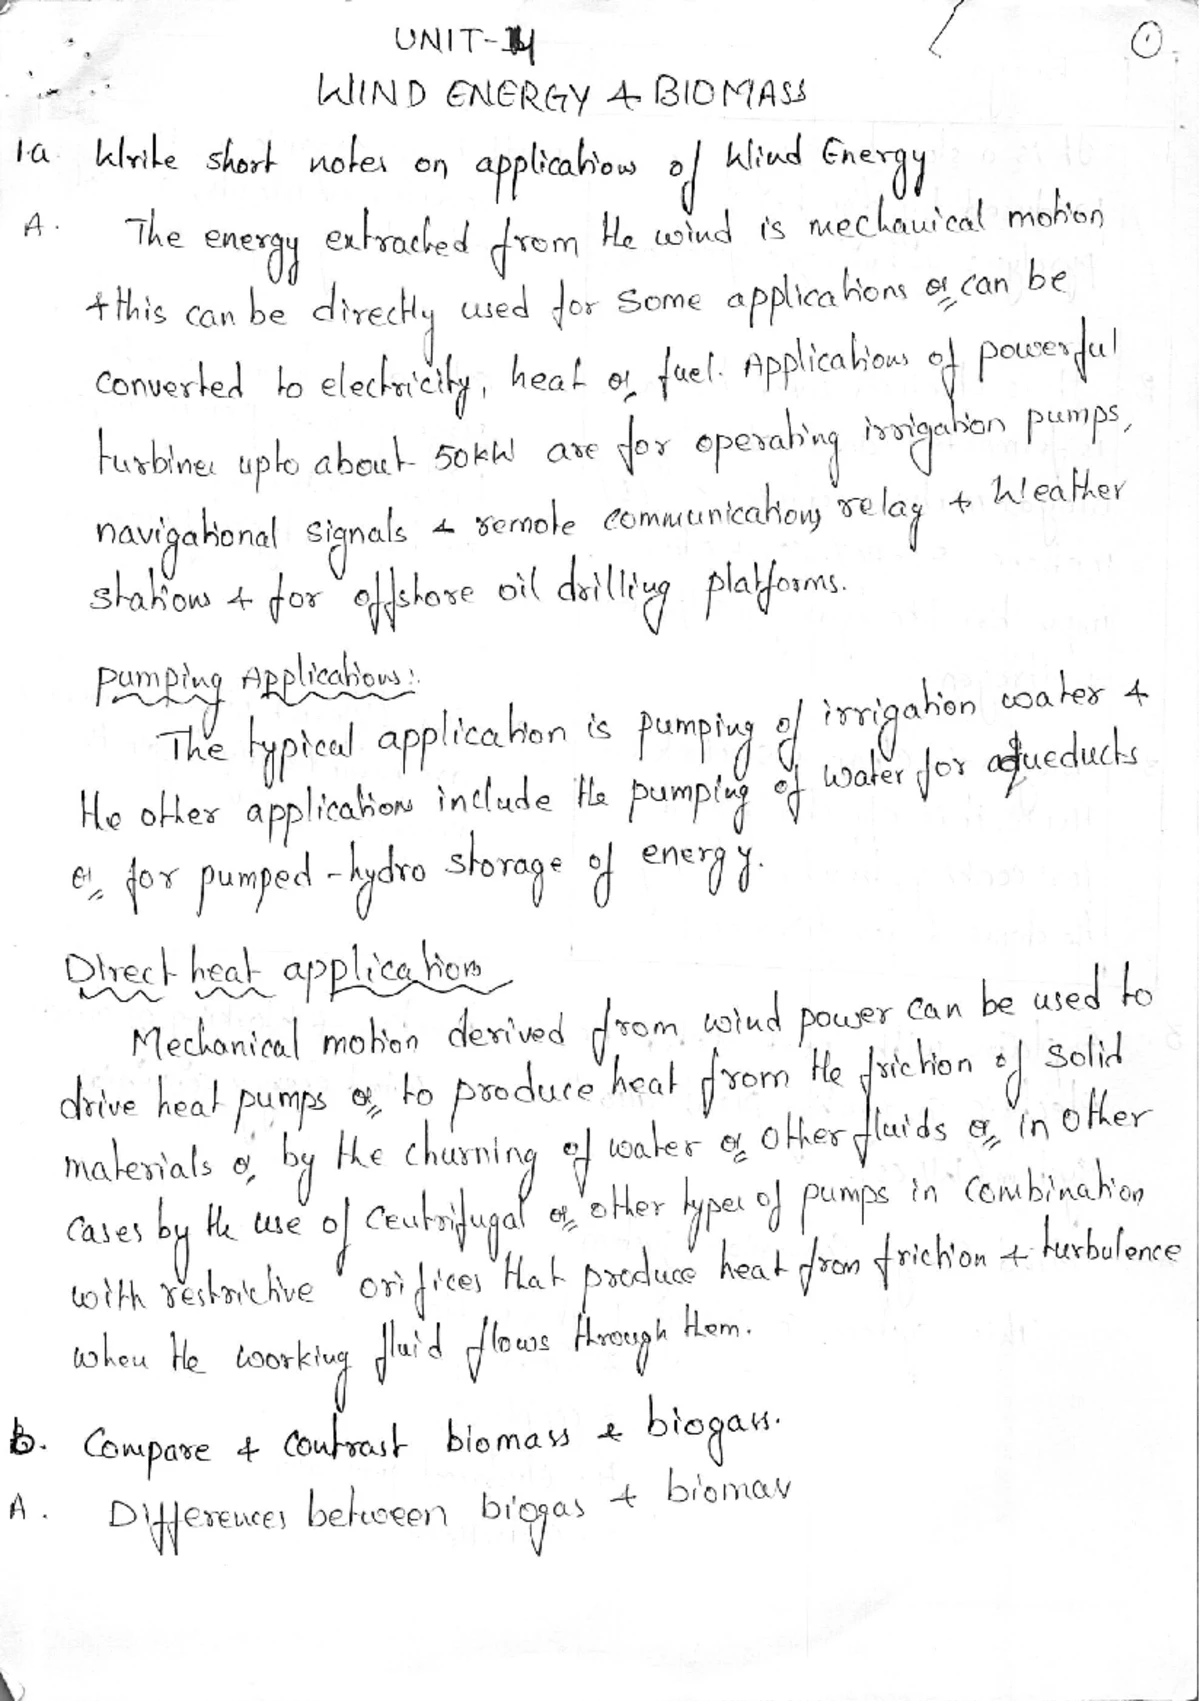 UNIT-4
①
WIND ENERGY & BIOMASS
1.a Write short notes on applications of Wind Energy
A. The energy extracted from the wind is mechanical motion
& this can be directly used for some applications or can be
converted to electricity, heat or fuel. Applications of powerful
turbines upto about 50kW are for operating irrigation pumps,
navigational signals & remote communications relay & Weather
stations & for offshore oil drilling platforms.
Pumping Applications:
The typical application is pumping of irrigation water &
the other applications include the pumping of water for aqueducts
or for pumped-hydro storage of energy.
Direct heat applications
Mechanical motion derived from wind power can be used to
drive heat pumps or to produce heat from the friction of solid
materials or by the churning of water or other fluids or in other
cases by the use of centrifugal or other types of pumps in combination
with restrictive orifices that produce heat from friction & turbulence
when the working fluid flows through them.
b. Compare & contrast biomass & biogas.
A. Differences between biogas & biomass